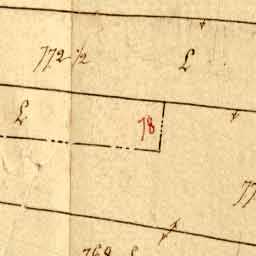 772 1/2 L
L
78
77
768 L